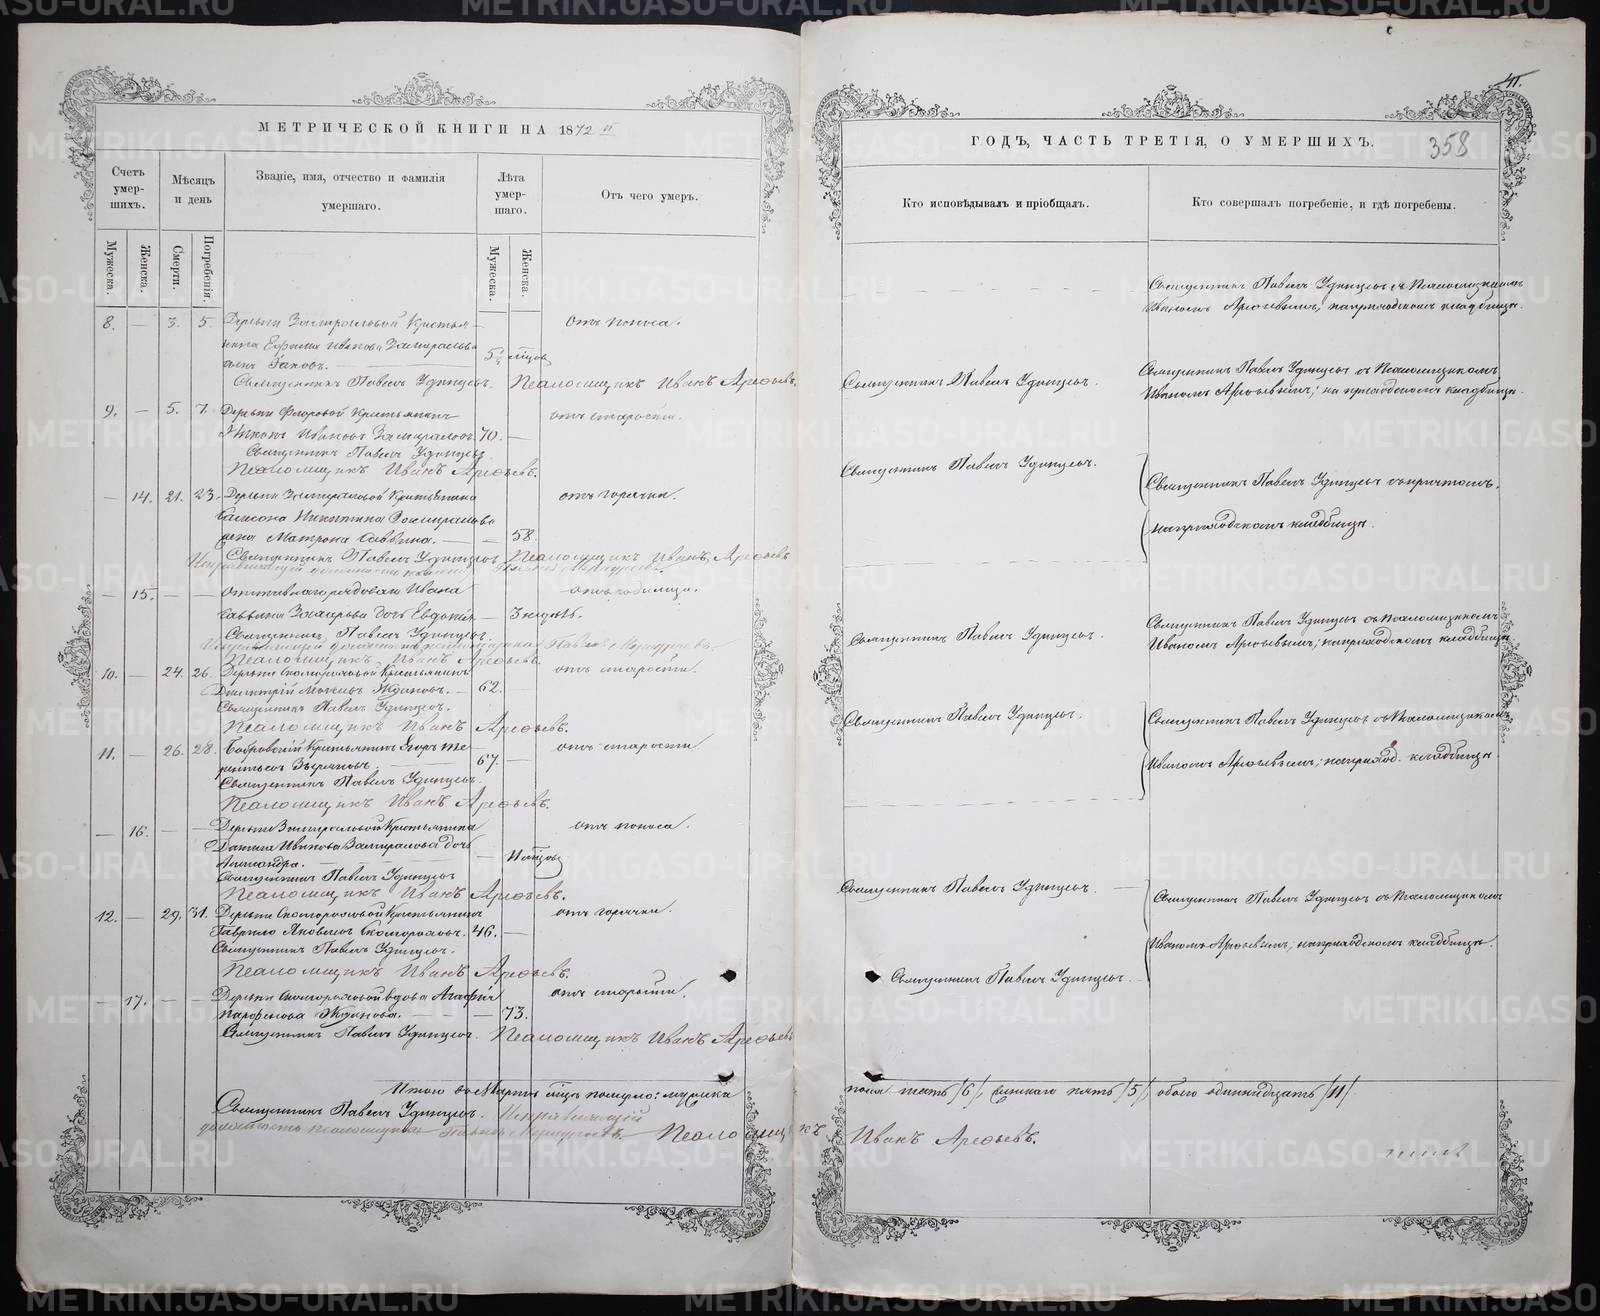 МЕТРИЧЕСКОЙ КНИГИ НА 1872 й
Счетъ умер- шихъ.
Мѣсяцъ и день
Званіе, имя, отчество и фамилія умершаго.
Лѣта умер- шаго.
Отъ чего умеръ.
Мужеска.
Женска.
Смерти.
Погребенія.
Мужеска.
Женска.
8. — 3. 5. Деревни Замираловой Крестья- отъ поноса.
нина Ефима Иванова Замиралова
сынъ Іаковъ. 5½ мѣсяцовъ
Священникъ Павелъ Удинцевъ. Псаломщикъ Иванъ Арефьевъ.
9. — 5. 7. Деревни Фроровой Крестьянинъ отъ старости.
Никонъ Ивановъ Замираловъ 70. —
Священникъ Павелъ Удинцевъ.
Псаломщикъ Иванъ Арефьевъ.
— 14. 21. 23. Деревни Замираловой Крестьянина отъ горячки.
Никитина Замиралова
жена Матрона Саввина. — — 58.
Священникъ Павелъ Удинцевъ. Псаломщикъ Иванъ Арефьевъ
— 15. — — Отставнаго рядоваго Ивана отъ родимца.
Саввина Захарова дочь Евдокія — 3 недѣль.
Священникъ Павелъ Удинцевъ.
Псаломщикъ Иванъ Арефьевъ.
10. — 24. 26. Деревни Скомороховой Крестьянинъ отъ старости.
Димитрій Ждановъ. — 62. —
Священникъ Павелъ Удинцевъ.
Псаломщикъ Иванъ Арефьевъ.
11. — 26. 28. Бобровскій Крестьянинъ Егоръ Те- отъ старости
рентьевъ Звѣревъ. 67. —
Священникъ Павелъ Удинцевъ.
Псаломщикъ Иванъ Арефьевъ.
— 16. — — Деревни Замираловой Крестьянина отъ поноса.
Иванова Замиралова дочь
Александра. — мѣсяцовъ
Священникъ Павелъ Удинцевъ
Псаломщикъ Иванъ Арефьевъ.
12. — 29. 31. Деревни Скомороховой Крестьянинъ отъ горячки.
Гаврило Яковлевъ Скомороховъ. 46. —
Священникъ Павелъ Удинцевъ.
Псаломщикъ Иванъ Арефьевъ.
— 17. — — Деревни Скомороховой вдова Агафія отъ старости.
Парфенова Жданова. — — 73.
Священникъ Павелъ Удинцевъ. Псаломщикъ Иванъ Арефьевъ
Итого въ Мартѣ мѣсяцѣ померло: мужска
Священникъ Павелъ Удинцевъ. Исправляющій
должность псаломщика Павелъ Псаломщикъ
41.
ГОДЪ, ЧАСТЬ ТРЕТІЯ, О УМЕРШИХЪ. 358
Кто исповѣдывалъ и пріобщалъ.
Кто совершалъ погребеніе, и гдѣ погребены.
Священникъ Павелъ Удинцевъ съ Псаломщикомъ
Иваномъ Арефьевымъ; на приходскомъ кладбищѣ.
Священникъ Павелъ Удинцевъ. Священникъ Павелъ Удинцевъ съ Псаломщикомъ
Иваномъ Арефьевымъ; на приходскомъ кладбищѣ.
Священникъ Павелъ Удинцевъ. Священникъ Павелъ Удинцевъ съ причтомъ.
на приходскомъ кладбищѣ.
Священникъ Павелъ Удинцевъ. Священникъ Павелъ Удинцевъ съ Псаломщикомъ
Иваномъ Арефьевымъ; на приходскомъ кладбищѣ.
Священникъ Павелъ Удинцевъ. Священникъ Павелъ Удинцевъ съ Псаломщикомъ
Иваномъ Арефьевымъ; на приход. кладбищѣ.
Священникъ Павелъ Удинцевъ. Священникъ Павелъ Удинцевъ съ Псаломщикомъ
Иваномъ Арефьевымъ, на приходскомъ кладбищѣ.
Священникъ Павелъ Удинцевъ.
пола шесть /6/, женскаго пять /5/, обоего одиннадцать /11/
Иванъ Арефьевъ.
METRIKI.GASO-URAL.RU